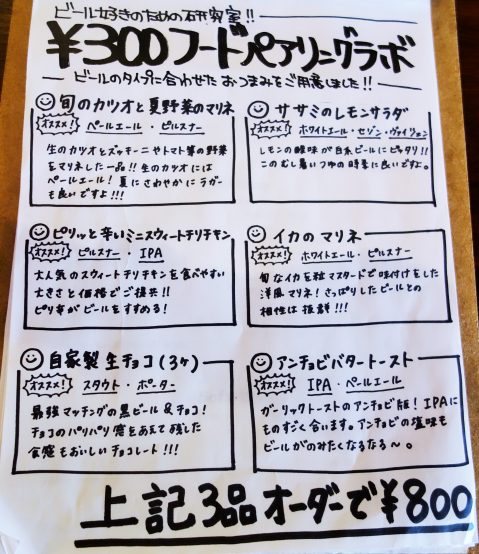 ビール好きのための研究室!!
¥300フードペアリングラボ
ビールのタイプに合わせたおつまみをご用意しました!!
旬のカツオと夏野菜のマリネ
オススメ! ペールエール・ピルスナー
生のカツオとズッキーニやトマト等の野菜
をマリネした一品!! 生のカツオには
ペールエール! 夏にさわやかにラガー
も良いですよ!!!
ササミのレモンサラダ
オススメ! ホワイトエール・セゾン・ヴァイツェン
レモンの酸味が白系ビールにピッタリ!!
このむし暑いつゆの時季に良いですよ。
ピリッと辛いミニスウィートチリチキン
オススメ! ピルスナー・IPA
大人気のスウィートチリチキンを食べやすい
大きさと価格でご提供!!
ピリ辛がビールをすすめる!
イカのマリネ
オススメ! ホワイトエール・ピルスナー
旬なイカを粒マスタードで味付けをした
洋風マリネ! さっぱりしたビールとの
相性は抜群!!!
自家製生チョコ(3ヶ)
オススメ! スタウト・ポーター
最強マッチングの黒ビール&チョコ!
チョコのパリパリ感をあえて残した
食感もおいしいチョコレート!!!
アンチョビバタートースト
オススメ! IPA・ペールエール
ガーリックトーストのアンチョビ版! IPAに
ものすごく合います。アンチョビの塩味も
ビールがのみたくなるなる〜。
上記3品オーダーで¥800